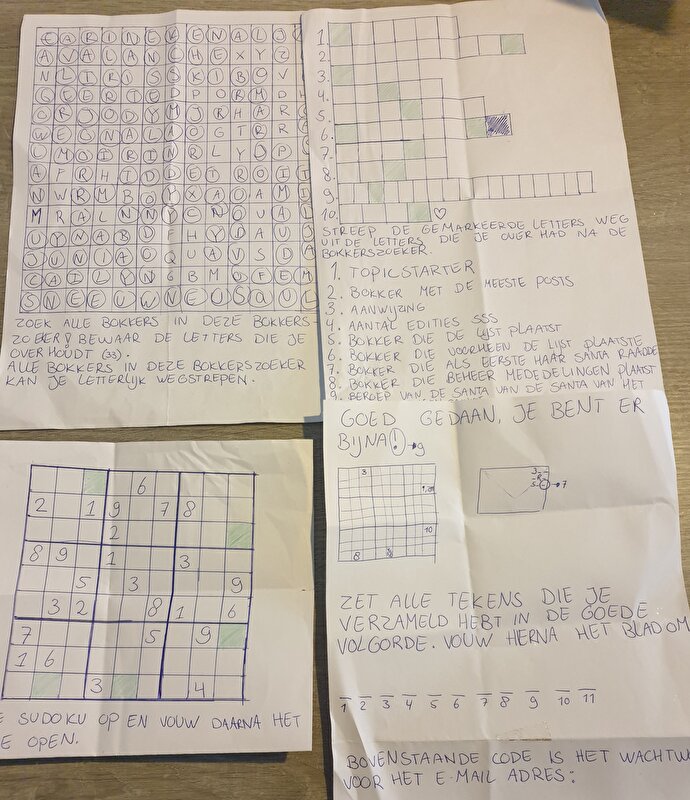 EARINEKENALJ
AVALANCHEXYZ
NLIRISSKIBOV
GEERTEDPORMDH
ORJODYMJRHAR
WEONALAOGTRR
UMOIRIARLYJP
AFRHIDDETROIT
NWRMBOYXAOAMI
MRALNNYCNOUAD
UYNABDFHYDAUJ
JUNIAOQUAVSDA
CAILYNGBMOFEM
SNEEUWNEUSAUL
ZOEK ALLE BOKKERS IN DEZE BOKKERS-
ZOEKER! BEWAAR DE LETTERS DIE JE
OVERHOUDT (33).
ALLE BOKKERS IN DEZE BOKKERSZOEKER
KAN JE LETTERLIJK WEGSTREPEN.
1.
2.
3.
4.
5.
6.
7.
8.
9.
10. ♡
STREEP DE GEMARKEERDE LETTERS WEG
UIT DE LETTERS DIE JE OVER HAD NA DE
BOKKERSZOEKER.
1. TOPICSTARTER
2. BOKKER MET DE MEESTE POSTS
3. AANWIJZING
4. AANTAL EDITIES SSS
5. BOKKER DIE DE LIJST PLAATST
6. BOKKER DIE VOORHEEN DE LIJST PLAATSTE
7. BOKKER DIE ALS EERSTE HAAR SANTA RAADDE
8. BOKKER DIE BEHEER MEDEDELINGEN PLAATST
9. BEROEP VAN DE SANTA VAN DE SANTA VAN HET
6
2 1 9 7 8
2
8 9 1 3
5 3 9
3 2 8 1 6
7 5 9
1 6
3 4
E SUDOKU OP EN VOUW DAARNA HET
E OPEN.
GOED GEDAAN, JE BENT ER
BIJNA! → 9
3
10
8
3
5 → 7
ZET ALLE TEKENS DIE JE
VERZAMELD HEBT IN DE GOEDE
VOLGORDE. VOUW HIERNA HET BLAD OM
1 2 3 4 5 6 7 8 9 10 11
BOVENSTAANDE CODE IS HET WACHTW
VOOR HET E-MAIL ADRES: